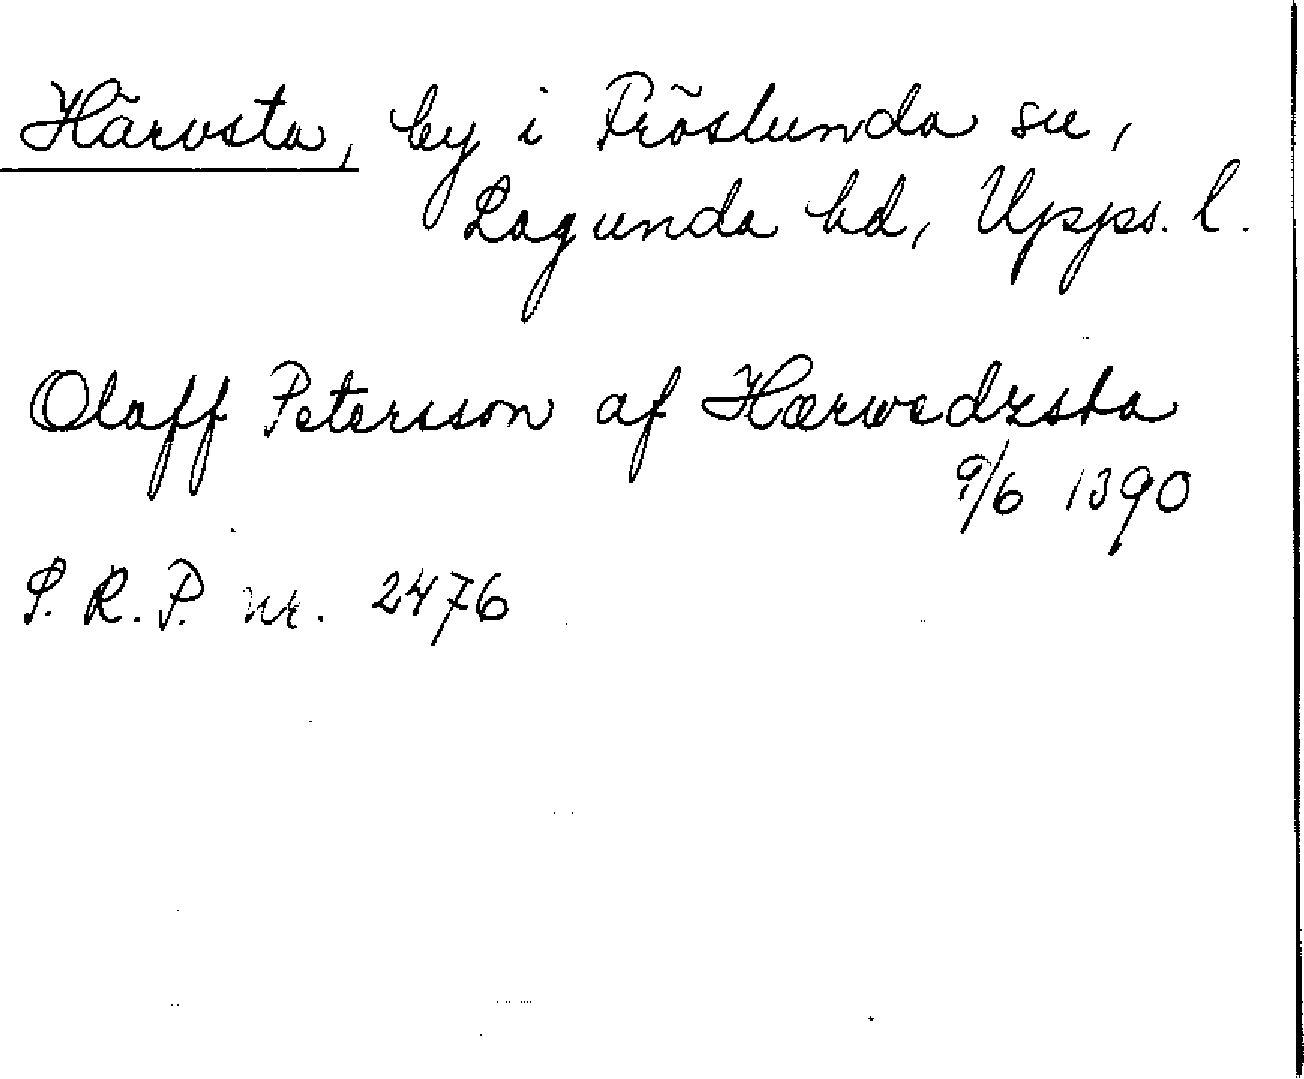 Härvsta, by i Fröslunda sn,
Lagunda hd, Upps. l.
Olaff Petersson af Hærwedzsta
9/6 1390
S. R. P. nr. 2476